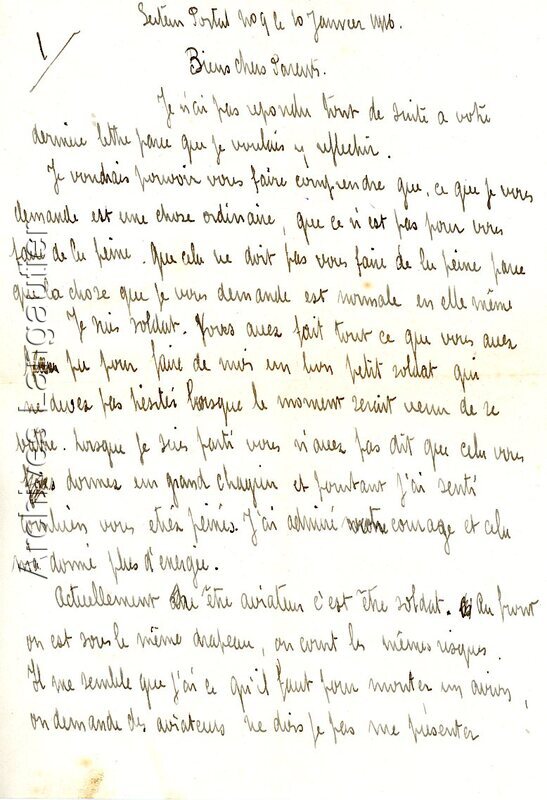 1
Secteur Postal 209 le 10 Janvier 1916.
Biens chers Parents.
Je n'ai pas repondu tout de suite a votre
derniere lettre parce que je voulais y reflechir.
Je voudrais pouvoir vous faire comprendre que, ce que je vous
demande est une chose ordinaire, que ce n'est pas pour vous
faire de la peine. Que cela ne doit pas vous faire de la peine parce
que la chose que je vous demande est normale en elle même
Je suis soldat. Vous avez fait tout ce que vous avez
pu pour faire de mois un bon petit soldat qui
ne devez pas hésités lorsque le moment serait venu de se
battre. Lorsque je suis parti vous n'avez pas dit que cela vous
donnez un grand chagrin et pourtant j'ai senti
combien vous etiez peinés. J'ai admiré votre courage et cela
m'a donné plus d'energie.
Actuellement être aviateur c'est être soldat. Au front
on est sous le même drapeau, on court les mêmes risques.
Il me semble que j'ai ce qu'il faut pour monter en avion,
on demande des aviateurs ne dois je pas me présenter
Archives Lafargaufier